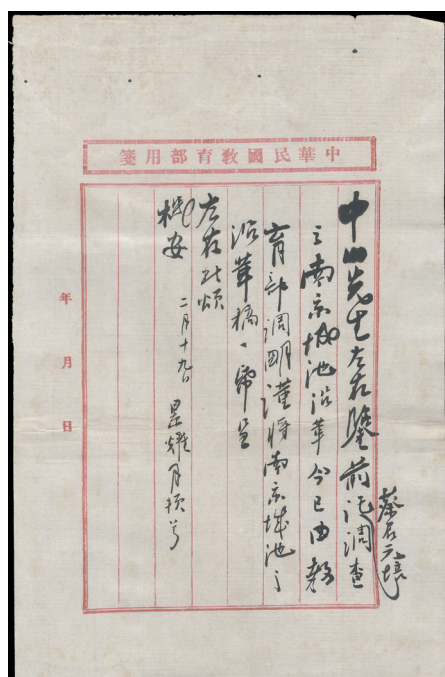 中華民國教育部用箋
中山先生左右鑒前託調查
蔡君元培
之南京城池沿革今已由教
育部調明謹將南京城池之
沿革稿一帋呈
左右此頌
機安
二月十九日
景耀月頓首
年
月
日